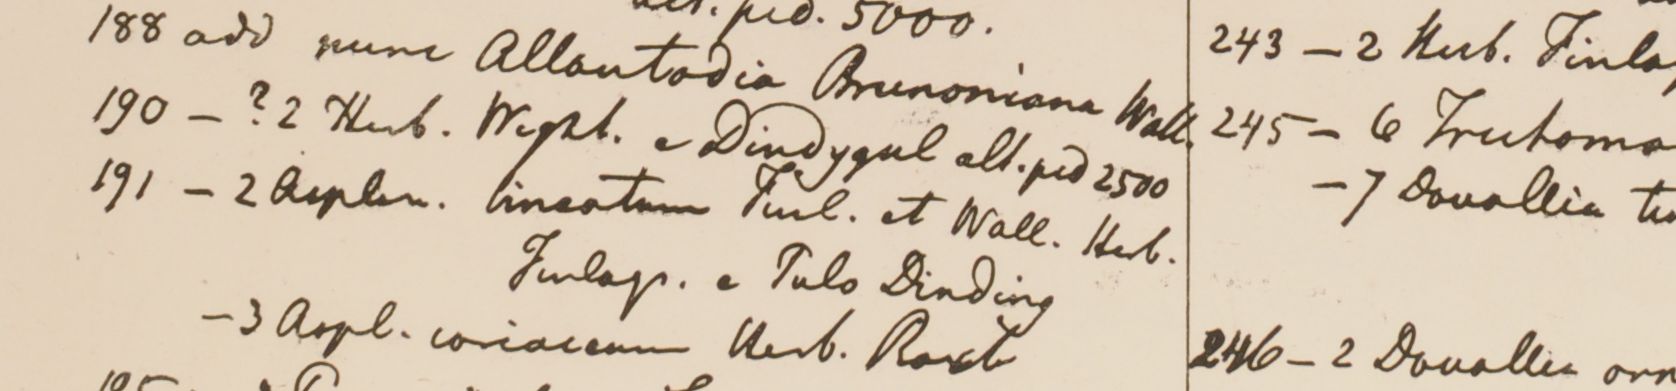 alt. ped. 5000.
188 add nunc Allantodia Brunoniana Wall.
190 - ? 2 Herb. Wight. e Dindygul alt. ped 2500
191 - 2 Asplen. lineatum Finl. et Wall. Herb.
Finlays. e Pulo Dinding
- 3 Aspl. coriaceum Herb. Roxb
195
243 - 2 Herb. Finlay
245 - 6 Trichoma
- 7 Davallia
246 - 2 Davallia orn